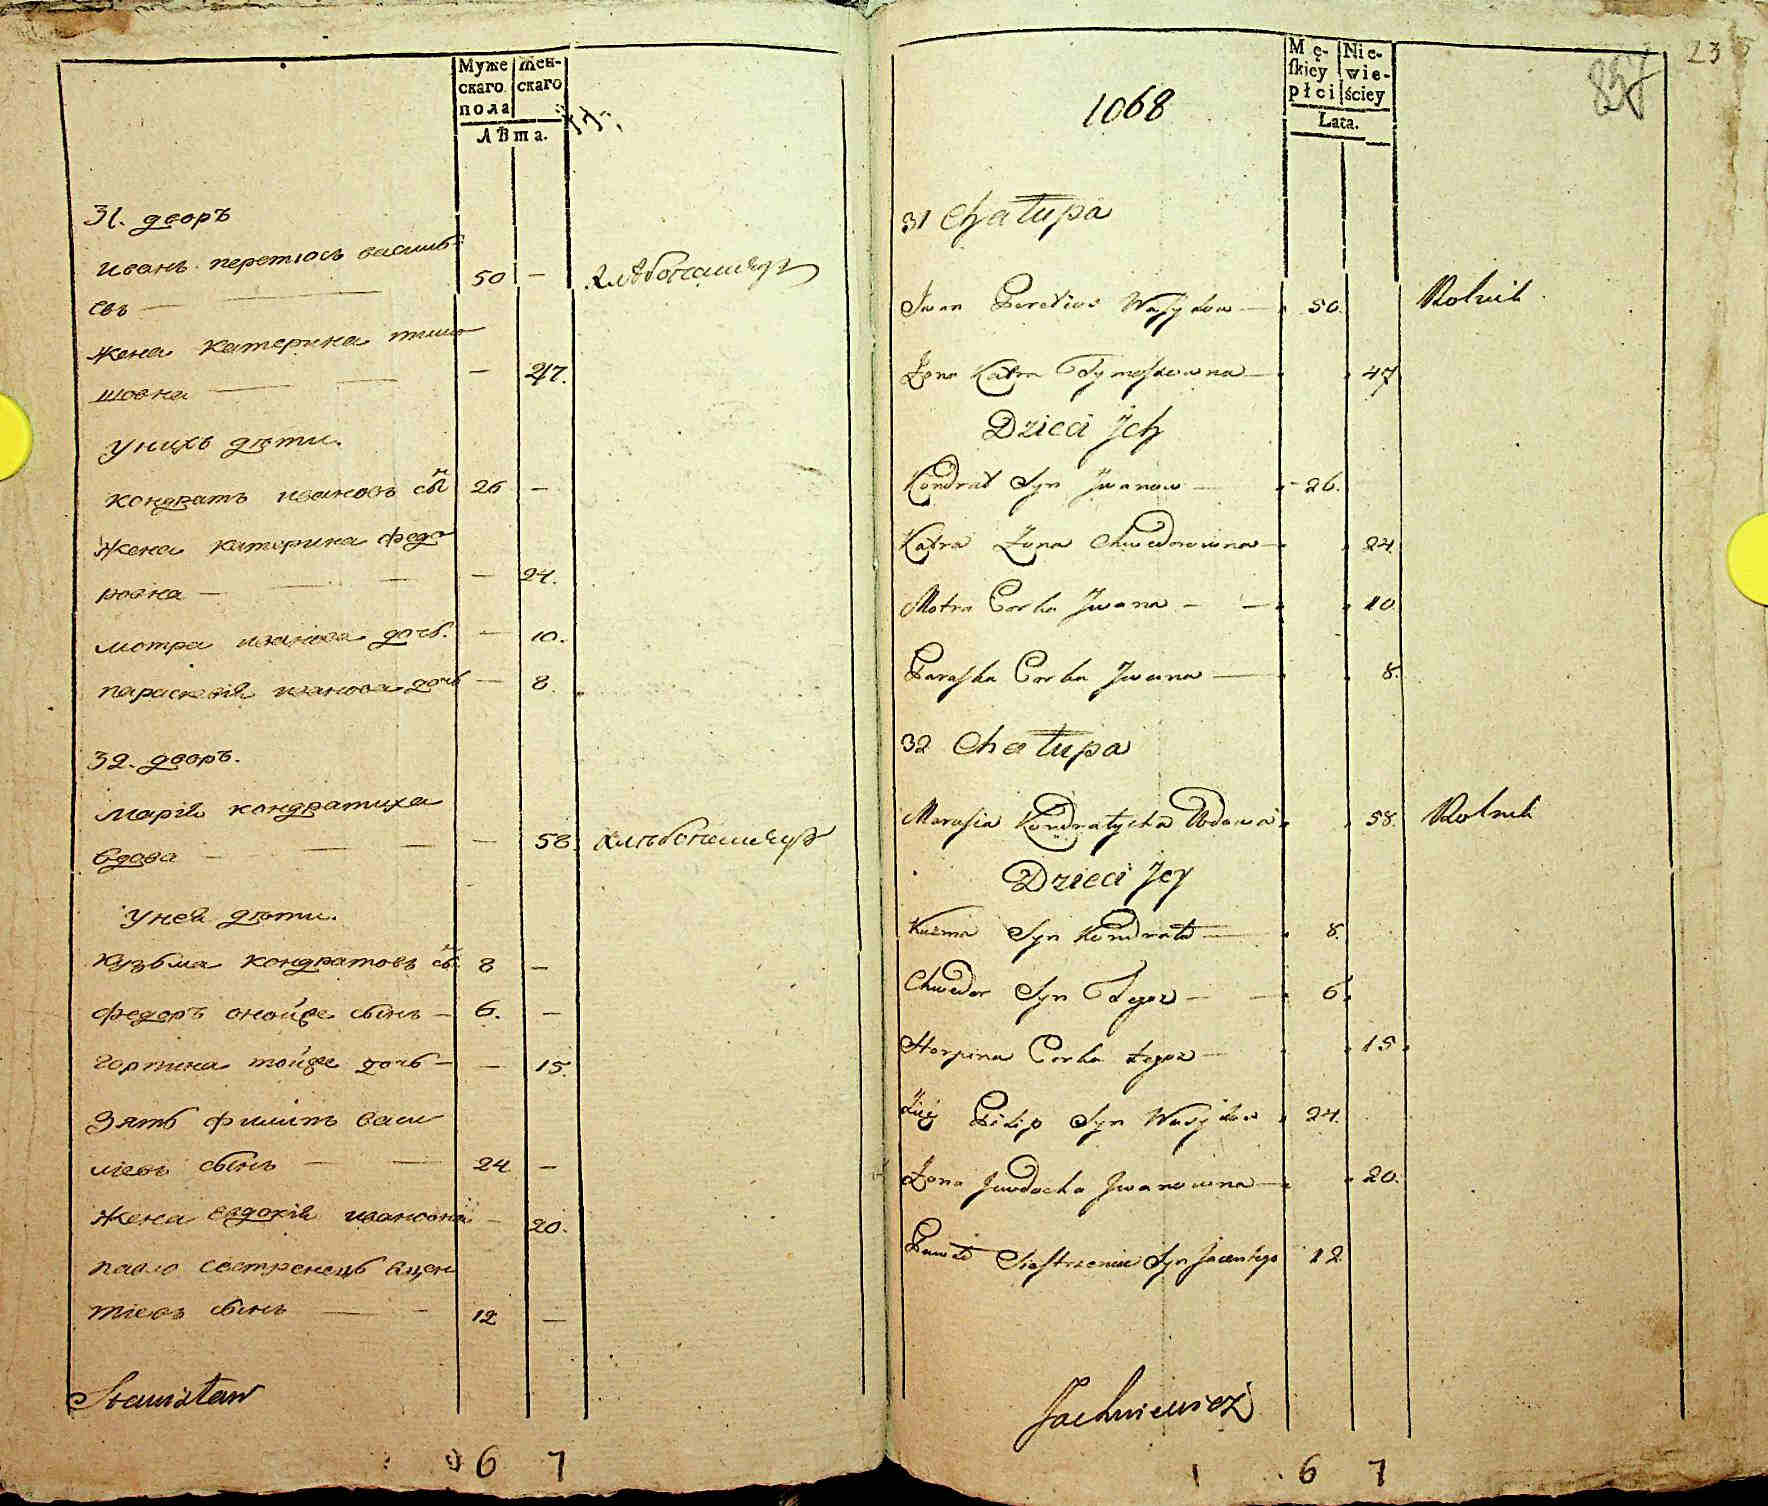 Муже Жен-
скаго скаго
пола
Лѣта.
31. дворъ
иванъ перетюсь василь
евъ — 50 — хлѣбопашецъ
жена катерина тимо
шовна — — 47.
унихъ дѣти.
кондратъ ивановъ сынъ 26 —
жена катерина федо
ровна — — 24.
мотра иванова дочь. — 10.
параскевія иванова дочь — 8.
32. дворъ.
марія кондратиха
вдова — — 58. хлѣбопашецъ
уней дѣти.
кузьма кондратовъ сынъ 8 —
федоръ онойже сынъ — 6. —
горпина тойже дочь — — 15.
зять филипъ васи
лievъ сынъ — 24 —
жена евдокія ивановна — 20.
павло сестренецъ вцен
тіевъ сынъ — 12 —
Stanisław
6 7
23
857
1068
Mę- Nie-
ſkiey wie-
płci ściey
Lata.
31 Chałupa
Jwan Peretius Wasylow — 50. Rolnik
Żona Katra Tymoszowna — 47
Dzieci Jch
Kondrat Syn Jwanow — 26.
Katra Żona Chwedorowna — 24.
Motra Corka Jwana — — 10.
Paraſka Corka Jwana — 8.
32 Chałupa
Marusia Kondratycha Wdowa 58. Rolnik
Dzieci Jey
Kuzma Syn Kondrata — 8.
Chwedor Syn Tegoz — — 6.
Horpina Corka tegoz — 15.
Zięć Pilip Syn Wasylow 24.
Żona Jewdocha Jwanowna — 20.
Paweł Siostrzeniec Syn Jacentego 12.
Jachniewicz
6 7